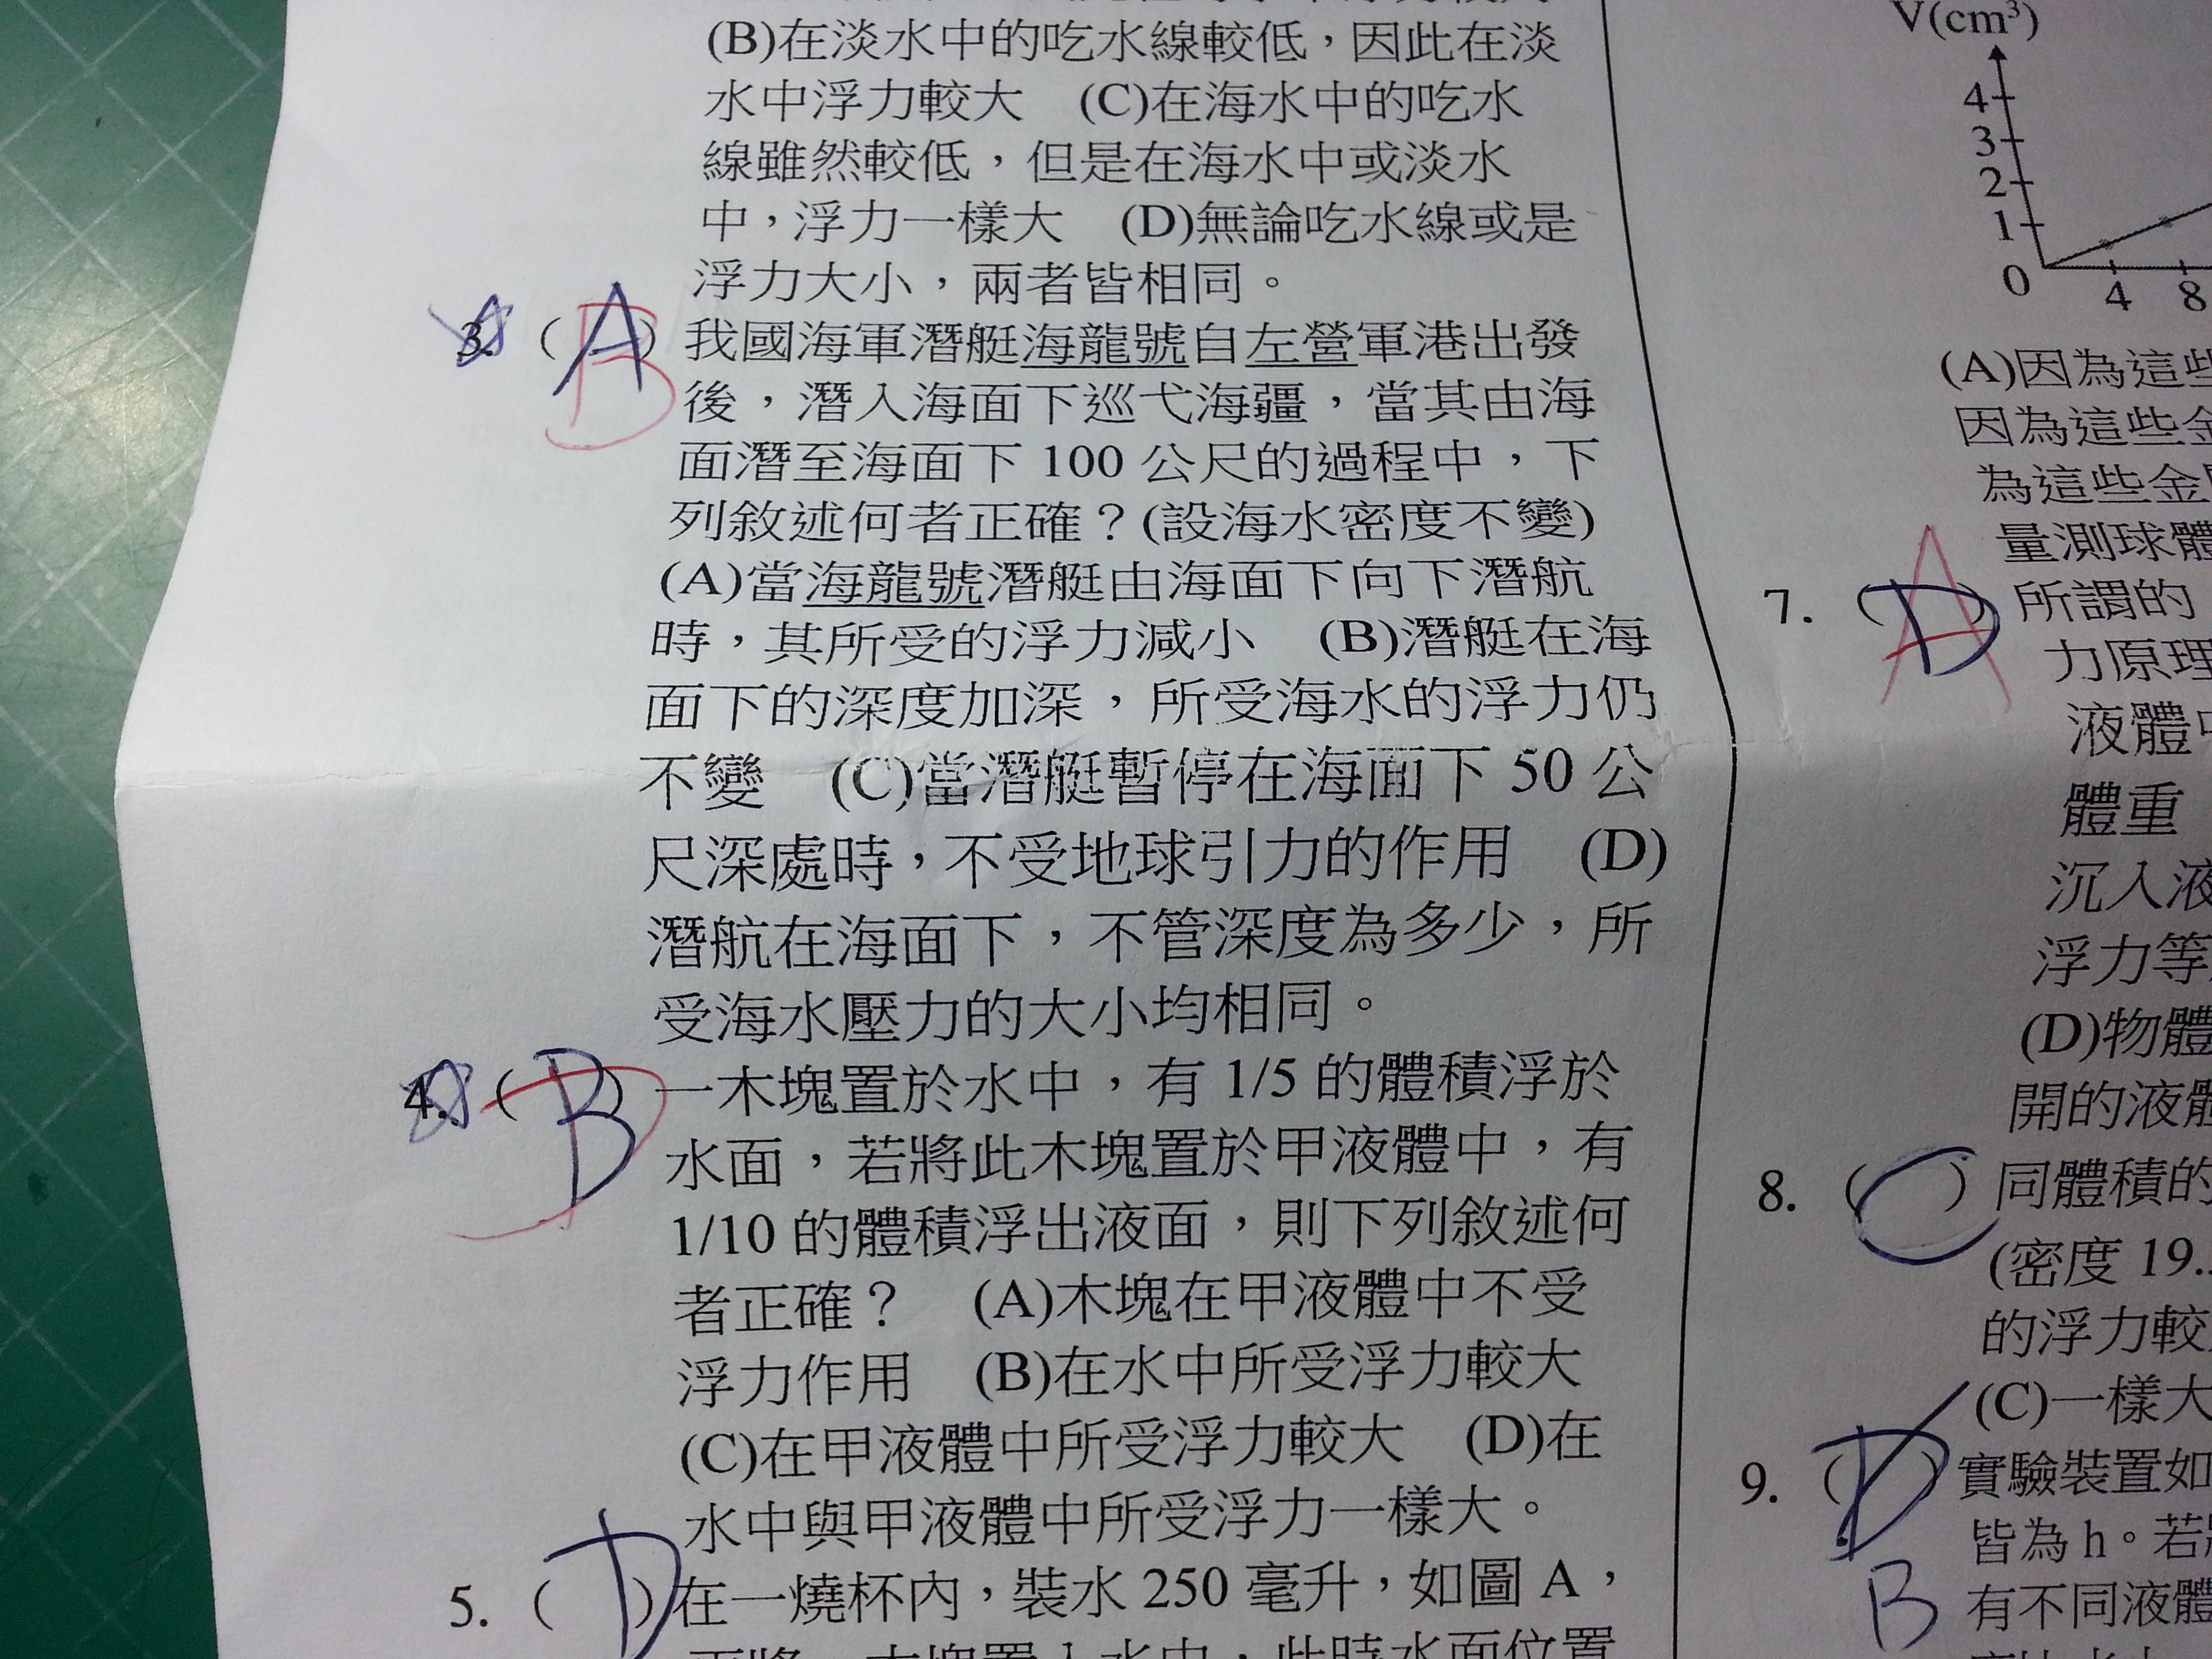 (B)在淡水中的吃水線較低，因此在淡
水中浮力較大　(C)在海水中的吃水
線雖然較低，但是在海水中或淡水
中，浮力一樣大　(D)無論吃水線或是
浮力大小，兩者皆相同。
3. (A B)我國海軍潛艇海龍號自左營軍港出發
後，潛入海面下巡弋海疆，當其由海
面潛至海面下 100 公尺的過程中，下
列敘述何者正確？(設海水密度不變)
(A)當海龍號潛艇由海面下向下潛航
時，其所受的浮力減小　(B)潛艇在海
面下的深度加深，所受海水的浮力仍
不變　(C)當潛艇暫停在海面下 50 公
尺深處時，不受地球引力的作用　(D)
潛航在海面下，不管深度為多少，所
受海水壓力的大小均相同。
4. (B D)一木塊置於水中，有 1/5 的體積浮於
水面，若將此木塊置於甲液體中，有
1/10 的體積浮出液面，則下列敘述何
者正確？　(A)木塊在甲液體中不受
浮力作用　(B)在水中所受浮力較大
(C)在甲液體中所受浮力較大　(D)在
水中與甲液體中所受浮力一樣大。
5. (D)在一燒杯內，裝水 250 毫升，如圖 A，
V(cm³)
4
3
2
1
0 4 8
(A)因為這些
因為這些金
為這些金
量測球體
7. (D A)所謂的
力原理
液體中
體重
沉入液
浮力等
(D)物體
開的液體
8. (C)同體積的
(密度 19.
的浮力較
(C)一樣大
9. (D)實驗裝置如
皆為 h。若
B 有不同液體